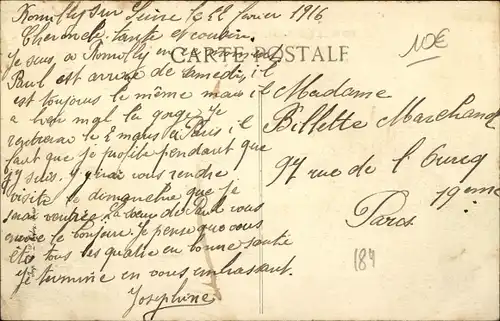 Romilly sur Seine le 22 fevrier 1916
Cher oncle tante et cousin
Je suis a Romilly en ce moment
CARTE POSTALE
Paul est arrivé de samedi, il
est toujours le même mais il
a bien mal la gorge je
rentrerai le 2 mars a Paris il
faut que je profite pendant que
j'y suis. J'irai vous rendre
visite le dimanche que je
serai rentrée. La soeur de Paul vous
envoie le bonjour. Je pense que vous
êtes tous les quatre en bonne santé
Je termine en vous embrassant.
Josephine
10€
Madame
Billette Marchand
97 rue de l'Ourcq
19eme
Paris
184